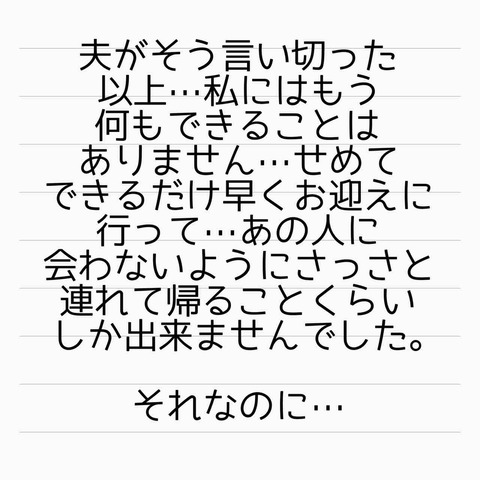 夫がそう言い切った
以上…私にはもう
何もできることは
ありません…せめて
できるだけ早くお迎えに
行って…あの人に
会わないようにさっさと
連れて帰ることくらい
しか出来ませんでした。
それなのに…